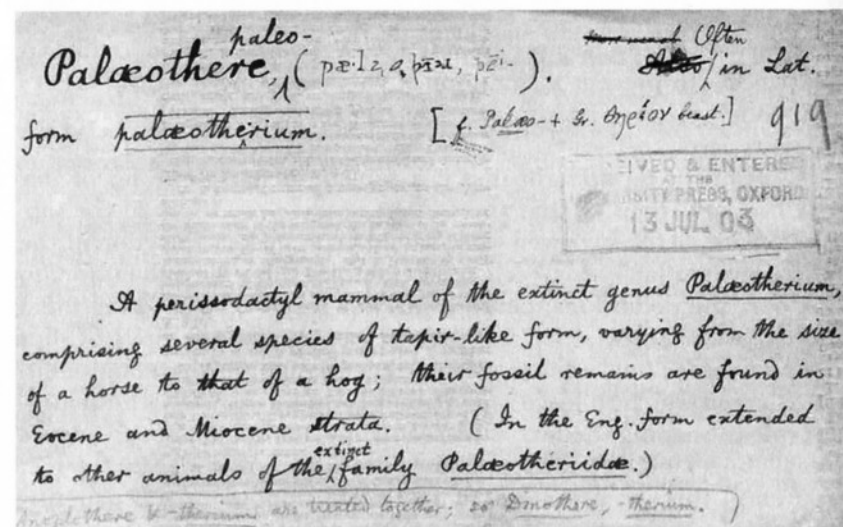 paleo-
Palæothere, ( ). Often
in Lat.
form palæotherium. [f. Palæo- + Gr. θηρίον beast.] 919
EIVED & ENTERE
THE
RSITY PRESS, OXFORD
13 JUL 03
A perissodactyl mammal of the extinct genus Palæotherium,
comprising several species of tapir-like form, varying from the size
of a horse to that of a hog; their fossil remains are found in
Eocene and Miocene strata. (In the Eng. form extended
to other animals of the extinct family Palæotheriidæ.)
Anoplothere & -therium are treated together; so Dinothere, -therium.